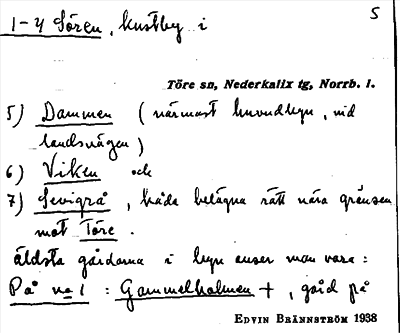 1-4 Sören, kustby i
5
Töre sn, Nederkalix tg, Norrb. l.
5) Dammen (närmast huvudbyn, vid
landsvägen)
6) Viken och
7) Sevigrå, båda belägna rätt nära gränsen
mot Töre.
äldsta gårdarna i byn anser man vara:
På no 1 : Gammelholmen +, gård på
EDVIN BRÄNNSTRÖM 1938